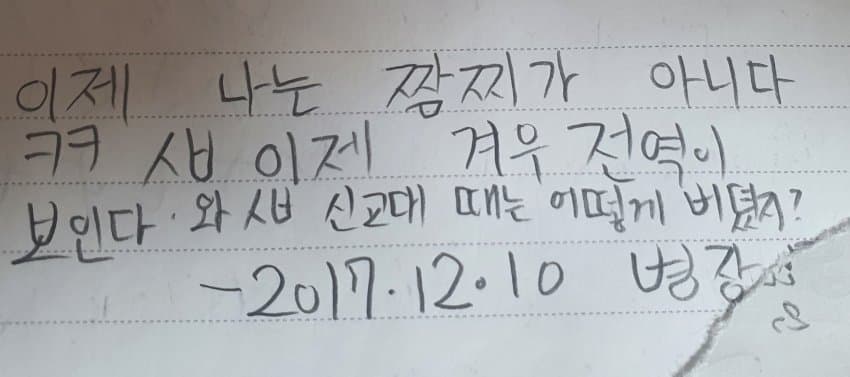 이제 나는 짬찌가 아니다
ㅋㅋ ㅅㅂ 이제 겨우 전역이
보인다. 와 ㅅㅂ 신교대 때는 어떻게 버텼지?
-2017.12.10 병장